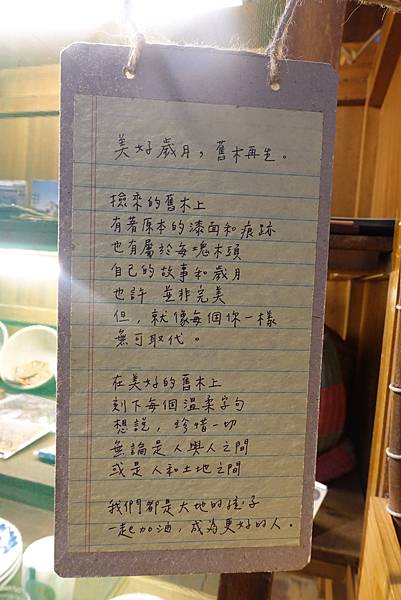 美好歲月，舊木再生。
撿來的舊木上
有著原本的漆面和痕跡
也有屬於每塊木頭
自己的故事和歲月
也許 並非完美
但，就像每個你一樣
無可取代。
在美好的舊木上
刻下每個溫柔字句
想說，珍惜一切
無論是人與人之間
或是人和土地之間
我們都是大地的孩子
一起加油，成為更好的人。